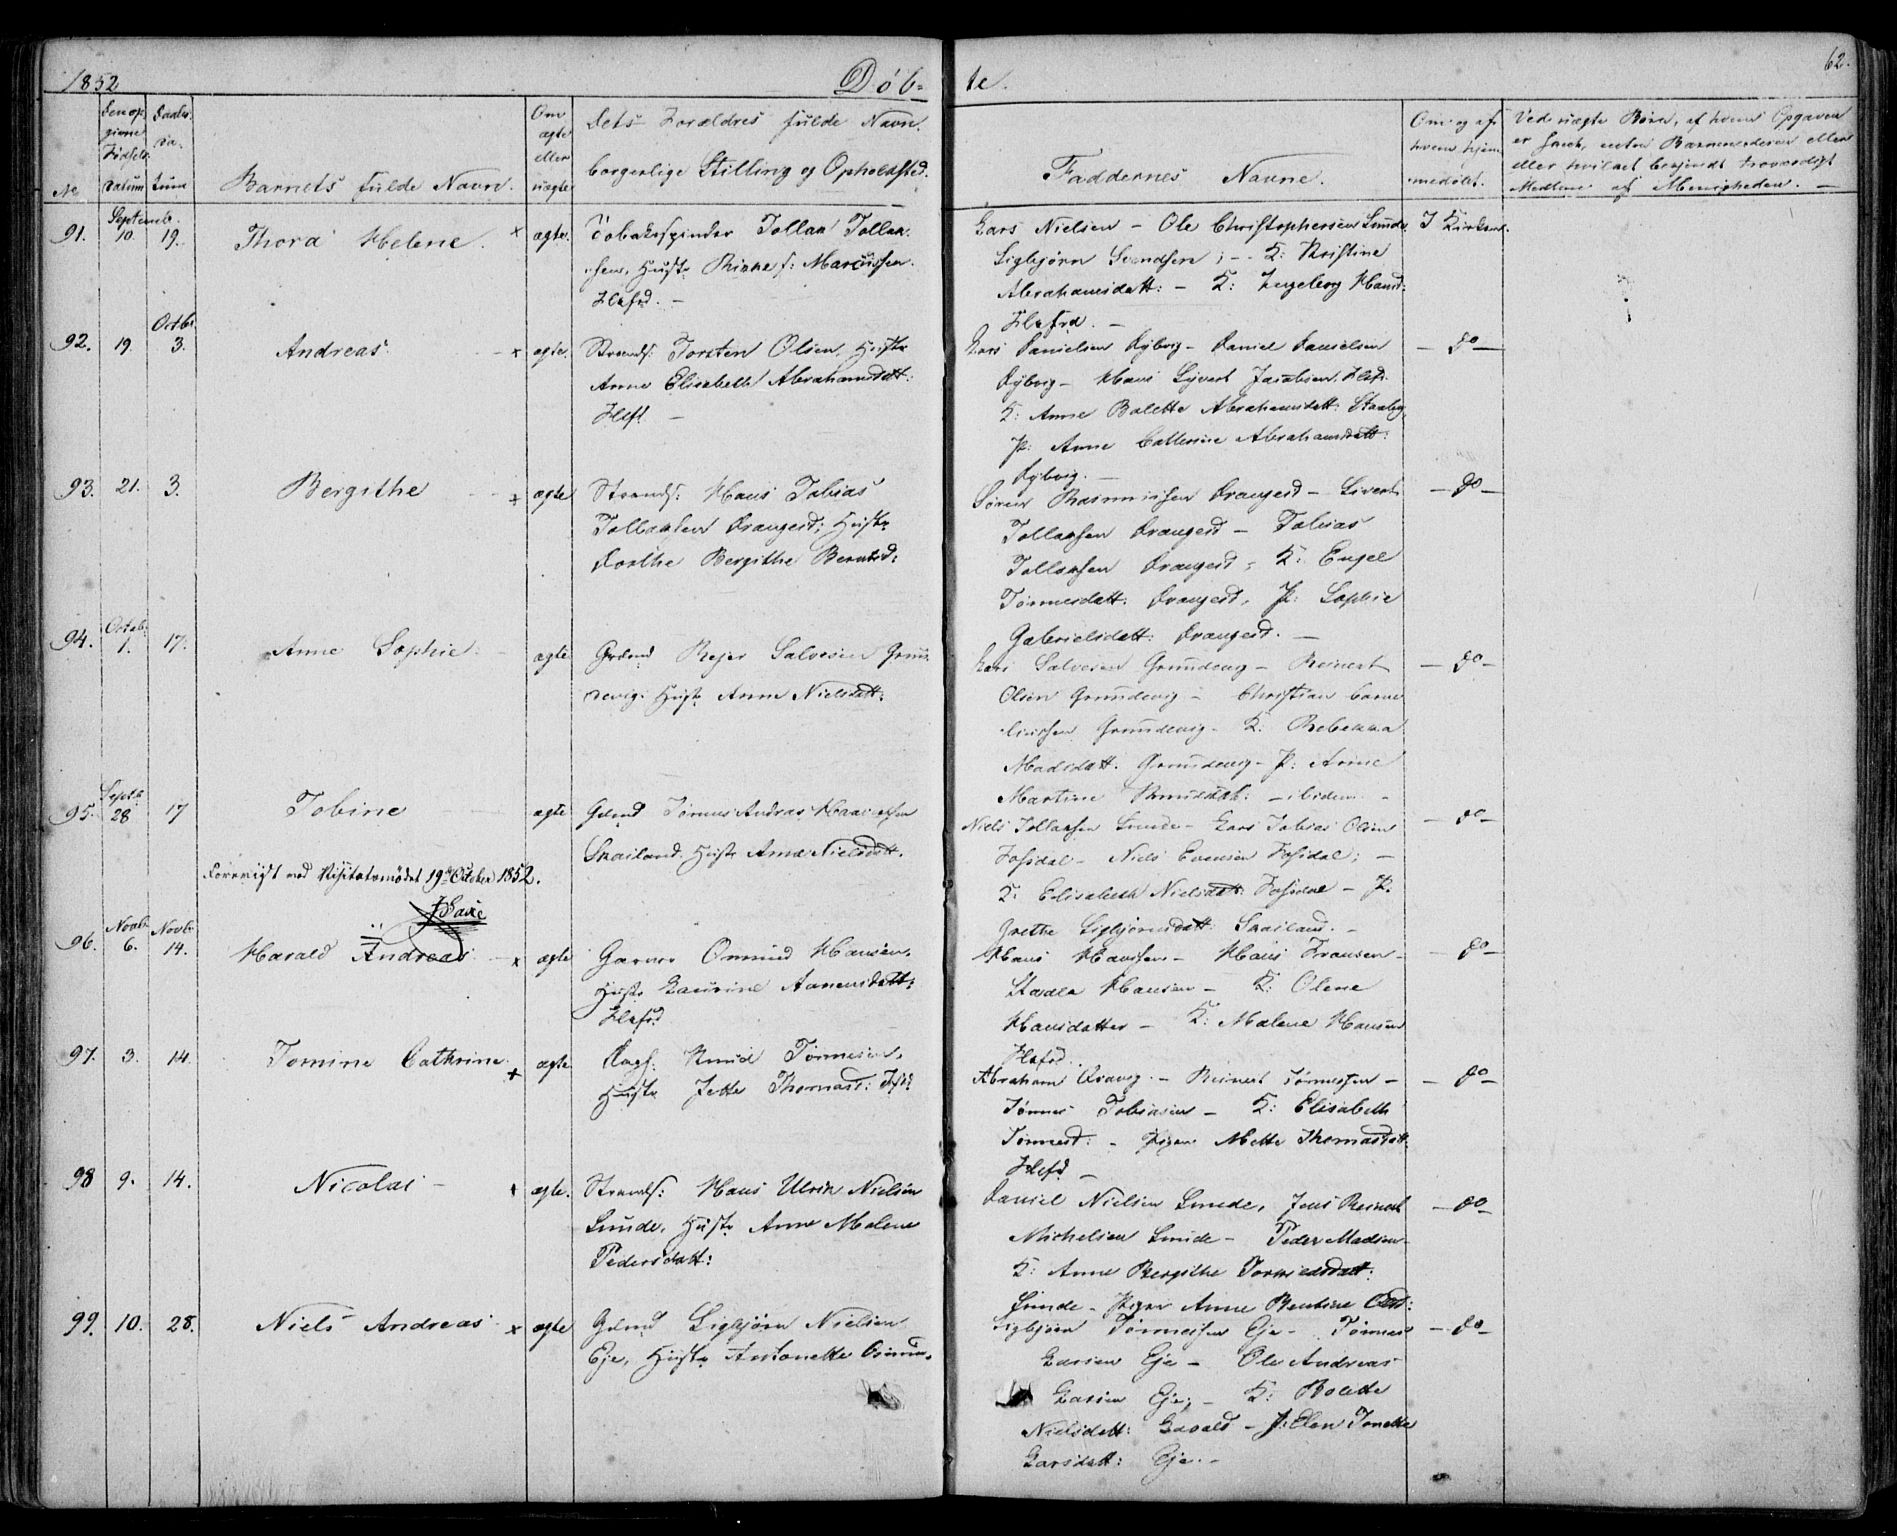 1852 Døb- te. 62.
No
Den opgivne Fødsels Datum
Daabs Datum
Barnets fulde Navn.
Om ægte eller uægte
Dets Forældres fulde Navn.
borgerlige Stilling og Opholdsted.
Faddernes Navne.
Om og af hvem hjemmedøbt.
Ved uægte Børn, af hvem Opgaven
er skeet, enten Barnemoderen eller
eller hvilket bekjendt troværdigt
Medlem af Menigheden. —
91. Septemb. 10. 19. Thora Helene. × ægte. Tobaksspinder Tollak Tollak-
sen, Hustr Rikke f: Marcussen.
Flkfrd. —
Lars Nielsen — Ole Christophersen Lunde I Kirken.
Sigbjørn Svendsen ; — K: Kristine
Abrahamsdatt: — K: Ingeborg Hansd:
Flkfrd. —
92. 19. Octbr 3. Andreas. × ægte. Strands: Torsten Olsen, Hustr
Anne Elisabeth Abrahamsdatt:
Flkf. —
Lars Danielsen Rybvig — Daniel Danielsen — do —
Rybvig — Hans Syvert Jacobsen, Flkf.
K: Anne Bolette Abrahamsdatt:
P: Anne Cathrine Abrahamsdatt:
Rybvig. —
93. 21. 3. Bergithe × ægte Strands: Hans Tobias
Tollaksen Drangeid; Hustr
Dorthe Bergithe Berntsd:
Søren Rasmussen Drangeid — Sivert — do —
Tollaksen Drangeid — Tobias
Tollaksen Drangeid, K: Engel
Tønnesdatt. Drangeid, P: Sophie
Gabrielsdatt: Drangeid. —
94. Octob: 1. 17. Anne Sophie. ægte Grdmd Rejer Salvesen Grun-
devig. Hustr Anne Nielsdatt:
Lars Salvesen Grundevig — Reinert — do —
Olsen Grundevig — Christian Corne-
liussen Grundevig — K. Rebekka
Madsdatt. Grundevig — P: Anne
Martine Knudsdatt: — ibidem —
95. Septb 28 17 Tobine ægte Grdmd Tønnes Andreas Haaversen
Skailand. Hustr Anna Nielsdatt.
Niels Tollaksen Lunde — Lars Tobias Olsen — do —
Josdal — Niels Evensen Josdal; —
K: Elisabeth Nielsdatt: Josdal — P.
Grethe Sigbjørnsdatt: Skailand. —
Forevist ved Visitatsmødet 19de October 1852.
96. Novbr 6. Novbr 14. Harald Andreas × ægte Garver Ommund Hansen,
Hustr Laurine Aanensdatt:
Flkfrd
Hans Hansen — Hans Fransen — do —
Hansen — K: Olene
Hansdatter — K: Malene Hansen
Flkfrd.
97. 3. 14. Tomine Cathrine. × ægte Dags. Knud Tønnesen,
Hustr Jette Thomasd:
Abraham — Reinert Tønnessen — do —
Tønnes Tobiasen — K: Elisabeth
Tønnesd: — Pigen Mette Thomasdatt.
Flkfd —
98 9. 14. Nicolai — × ægte. Strands: Hans Ulrik Nielsen
Lunde, Hustr Anne Malene
Pedersdatt:
Daniel Nielsen Lunde, Jens Reinert — do —
Michelsen Lunde — Peder Madsen —
K: Anne Bergithe
Lunde — Pigen Anne Bentine
99. 10. 28. Niels Andreas × ægte Grdmd Sigbjørn Nielsen
Eje, Hustr Antonette
Sigbjørn Tønnessen Eje — Tønnes — do —
Larsen Eje — Ole Andreas
Larsen Eje; — K: Bolette
Nielsdatt: — P: Elen Tonette
Larsdatt: Eje. —